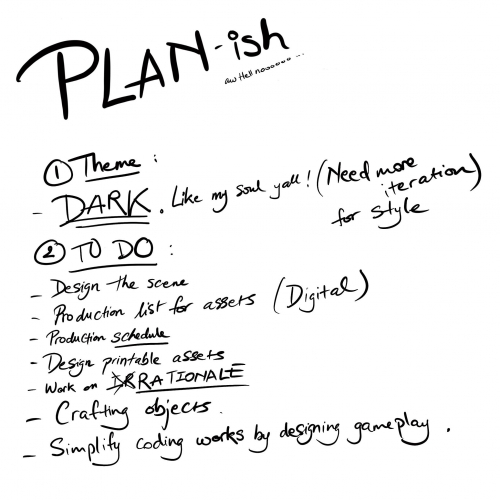 PLAN-ish
aw Hell nooooooo...
① Theme :
- DARK. Like my soul yall! (Need more iteration) for style
② TO DO :
- Design the scene
- Production list for assets (Digital)
- Production schedule
- Design printable assets
- Work on RATIONALE
- Crafting objects.
- Simplify coding works by designing gameplay.